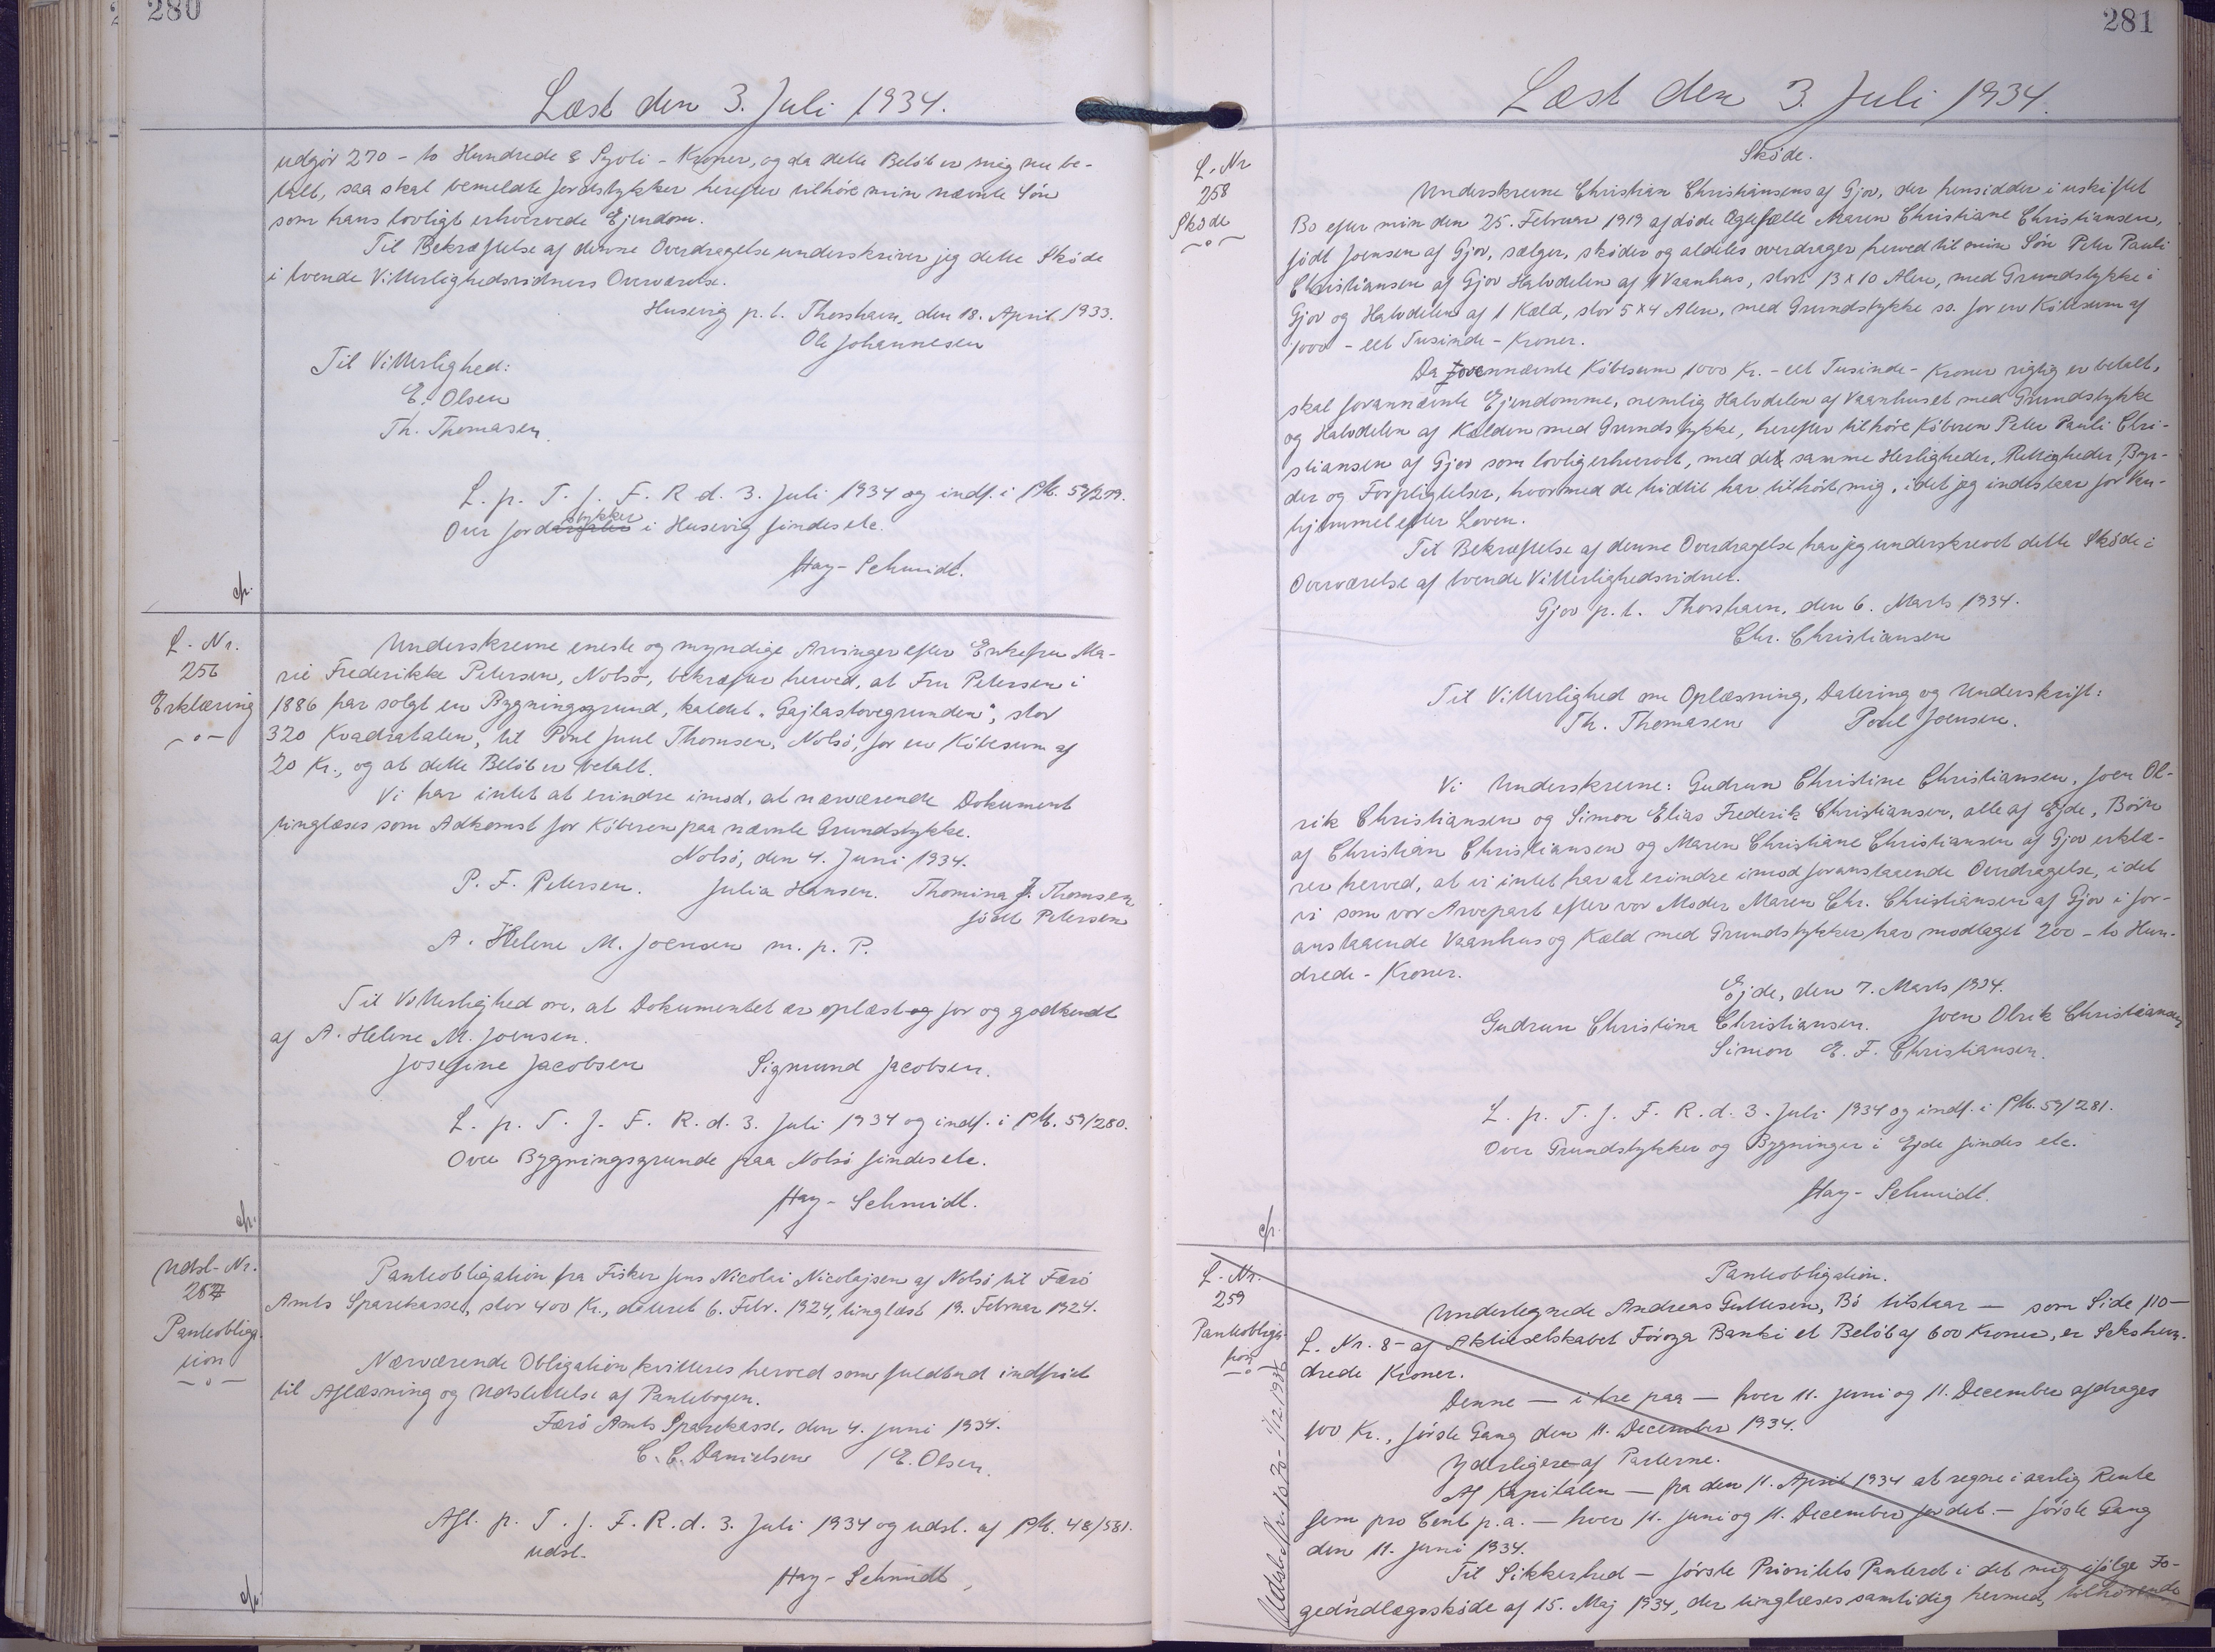 280
Læst den 3. Juli 1934.
udgør 270 - to Hundrede & Syvti - Kroner, og da dette Beløb er mig nu be-
talt, saa skal bemeldte Jordstykker herefter tilhøre min nævnte Søn
som hans lovligt erhvervede Ejendom.
Til Bekræftelse af denne Overdragelse underskriver jeg dette Skøde
i tvende Vitterlighedsvidners Overværelse.
Husevig p. t. Thorshavn, den 18. April 1933.
Ole Johannesen
Til Vitterlighed:
E. Olsen
Th. Thomasen.
L. p. T. f. F. R d. 3. Juli 1934 og indf. i Ptb. 59/279.
Over Jordstykker i Husevig findes etc.
Hay-Schmidt.
cfr.
L. Nr.
256
Erklæring
Underskrevne eneste og myndige Arvinger efter Enkefru Ma-
rie Frederikke Petersen, Nolsø, bekræfter herved, at Fru Petersen i
1886 har solgt en Bygningsgrund, kaldet "Gajlastovegrunden", stor
320 Kvadratalen, til Poul Juul Thomsen, Nolsø, for en Købesum af
20 Kr., og at dette Beløb er betalt.
Vi har intet at erindre imod, at nærværende Dokument
tinglæses som Adkomst for Køberen paa nævnte Grundstykke.
Nolsø, den 4. Juni 1934.
P. F. Petersen. Julia Hansen. Thomina J. Thomsen
født Petersen
A. Helene M. Joensen m. p. P.
Til Vitterlighed om, at Dokumentet er oplæst og for og godkendt
af A. Helene M. Joensen.
Josefine Jacobsen Sigmund Jacobsen.
L. p. T. f. F. R. d. 3. Juli 1934 og indf. i Ptb. 59/280.
Over Bygningsgrunde paa Nolsø findes etc.
Hay-Schmidt.
cfr.
Udsl-Nr.
257
Panteobliga-
tion
Panteobligation fra Fisker Jens Nicolai Nicolajsen af Nolsø til Færø
Amts Sparekasse, stor 400 Kr., dateret 6. Febr. 1924, tinglæst 19. Februar 1924.
Nærværende Obligation kvitteres herved som fuldtud indfriet
til Aflæsning og Udslettelse af Pantebogen.
Færø Amts Sparekasse, den 4. Juni 1934.
C. C. Danielsen / E. Olsen.
Afl. p. T. f. F. R. d. 3. Juli 1934 og udsl. af Ptb. 48/581.
udsl.
Hay-Schmidt,
cfr.
281
Læst den 3. Juli 1934.
L. Nr
258
Skøde
Skøde.
Underskrevne Christian Christiansens af Gjov, der hensidder i uskiftet
Bo efter min den 25. Februar 1919 afdøde Ægtefælle Maren Christiane Christiansen,
født Joensen af Gjov, sælger, skøder og aldeles overdrager herved til min Søn Peter Pauli
Christiansen af Gjov Halvdelen af 1 Vaanhus, stort 13 x 10 Alen, med Grundstykke i
Gjov og Halvdelen af 1 Kæld, stor 5 x 4 Alen, med Grundstykke ss. for en Købesum af
1000 - eet Tusinde - Kroner.
Da forannævnte Købesum 1000 Kr. - eet Tusinde - Kroner rigtig er betalt,
skal forannævnte Ejendomme, nemlig Halvdelen af Vaanhuset med Grundstykke
og Halvdelen af Kælden med Grundstykke, herefter tilhøre Køberen Peter Pauli Chri-
stiansen af Gjov som lovlig erhvervet, med det samme Herligheder, Rettigheder, Byr-
der og Forpligtelser, hvormed de hidtil har tilhørt mig, idet jeg indestaar for Van-
hjemmel efter Loven.
Til Bekræftelse af denne Overdragelse har jeg underskrevet dette Skøde i
Overværelse af tvende Vitterlighedsvidner.
Gjov p. t. Thorshavn, den 6. Marts 1934.
Chr. Christiansen
Til Vitterlighed om Oplæsning, Datering og Underskrift:
Th. Thomasen Poul Joensen.
Vi Underskrevne: Gudrun Christine Christiansen, Joen Ol-
rik Christiansen og Simon Elias Frederik Christiansen, alle af Ejde, Børn
af Christian Christiansen og Maren Christiane Christiansen af Gjov erklæ-
rer herved, at vi intet har at erindre imod foranstaaende Overdragelse, idet
vi som vor Arvepart efter vor Moder Maren Chr. Christiansen af Gjov i for-
anstaaende Vaanhus og Kæld med Grundstykker har modtaget 200 - to Hun-
drede - Kroner.
Ejde, den 7. Marts 1934.
Gudrun Christina Christiansen. Joen Olrik Christiansen
Simon E. F. Christiansen.
L. p. T. f. F. R. d. 3. Juli 1934 og indf. i Ptb. 59/281.
Over Grundstykker og Bygninger i Ejde findes etc.
Hay-Schmidt.
cfr.
L. Nr.
259
Panteobliga-
tion
Panteobligation.
Undertegnede Andreas Guttesen, Bø tilstaar — som Side 110 —
L. Nr. 8 - af Aktieselskabet Føroya Banki et Beløb af 600 Kroner, er Sekshun-
drede Kroner.
Denne — i tre paa — hver 11. Juni og 11. December afdrages
100 Kr., første Gang den 11. December 1934.
Yderligere af Parterne.
Af Kapitalen — fra den 11. April 1934 at regne i aarlig Rente
fem pro Cent p. a. — hver 11. Juni og 11. December fordet. — første Gang
den 11. Juni 1934.
Til Sikkerhed — første Prioritets Panteret i det mig ifølge Fo-
gedudlægsskøde af 15. Maj 1934, der tinglæses samtidig hermed, tilhørende